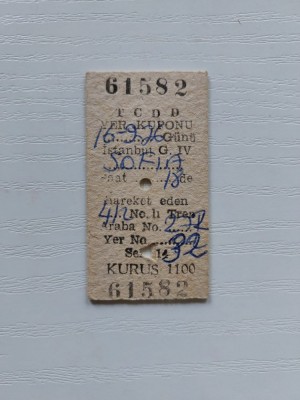 61582
T C D D
YER KUPONU
16-9-76 Günü
İstanbul G. IV
SOFYA
Saat 18 de
hareket eden
412 No. lı Tren
Araba No.
Yer No. 32
Seri 14
KURUŞ 1100
61582